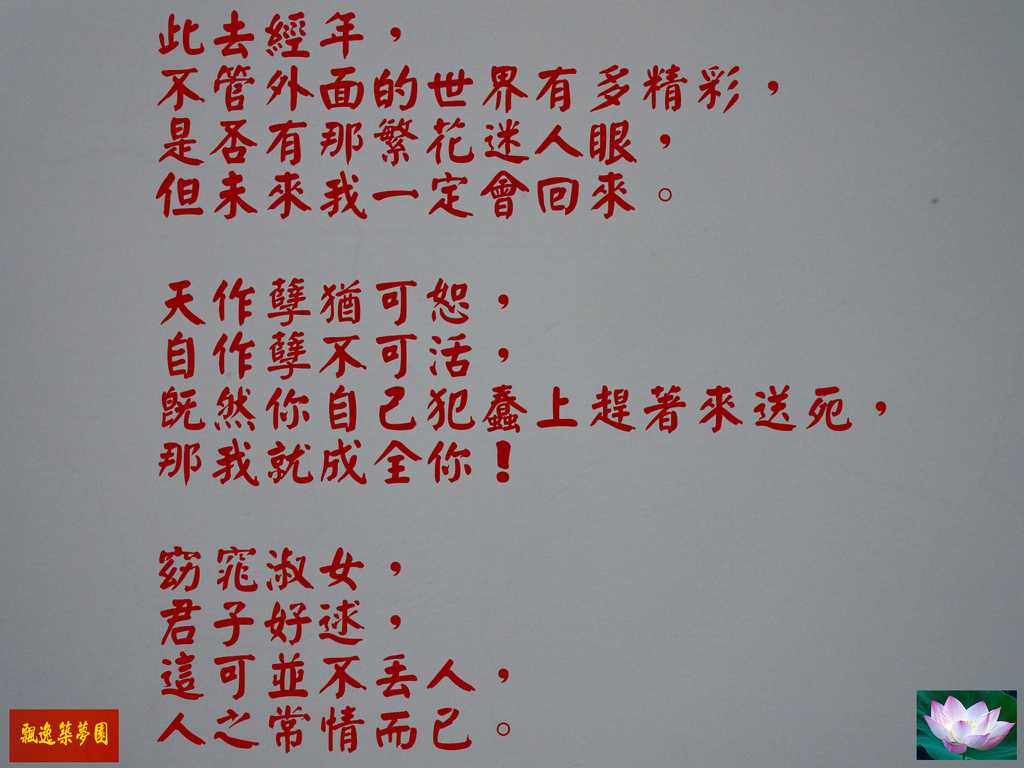 此去經年，
不管外面的世界有多精彩，
是否有那繁花迷人眼，
但未來我一定會回來。
天作孽猶可恕，
自作孽不可活，
既然你自己犯蠢上趕著來送死，
那我就成全你！
窈窕淑女，
君子好逑，
這可並不丟人，
人之常情而已。
飄逸築夢園